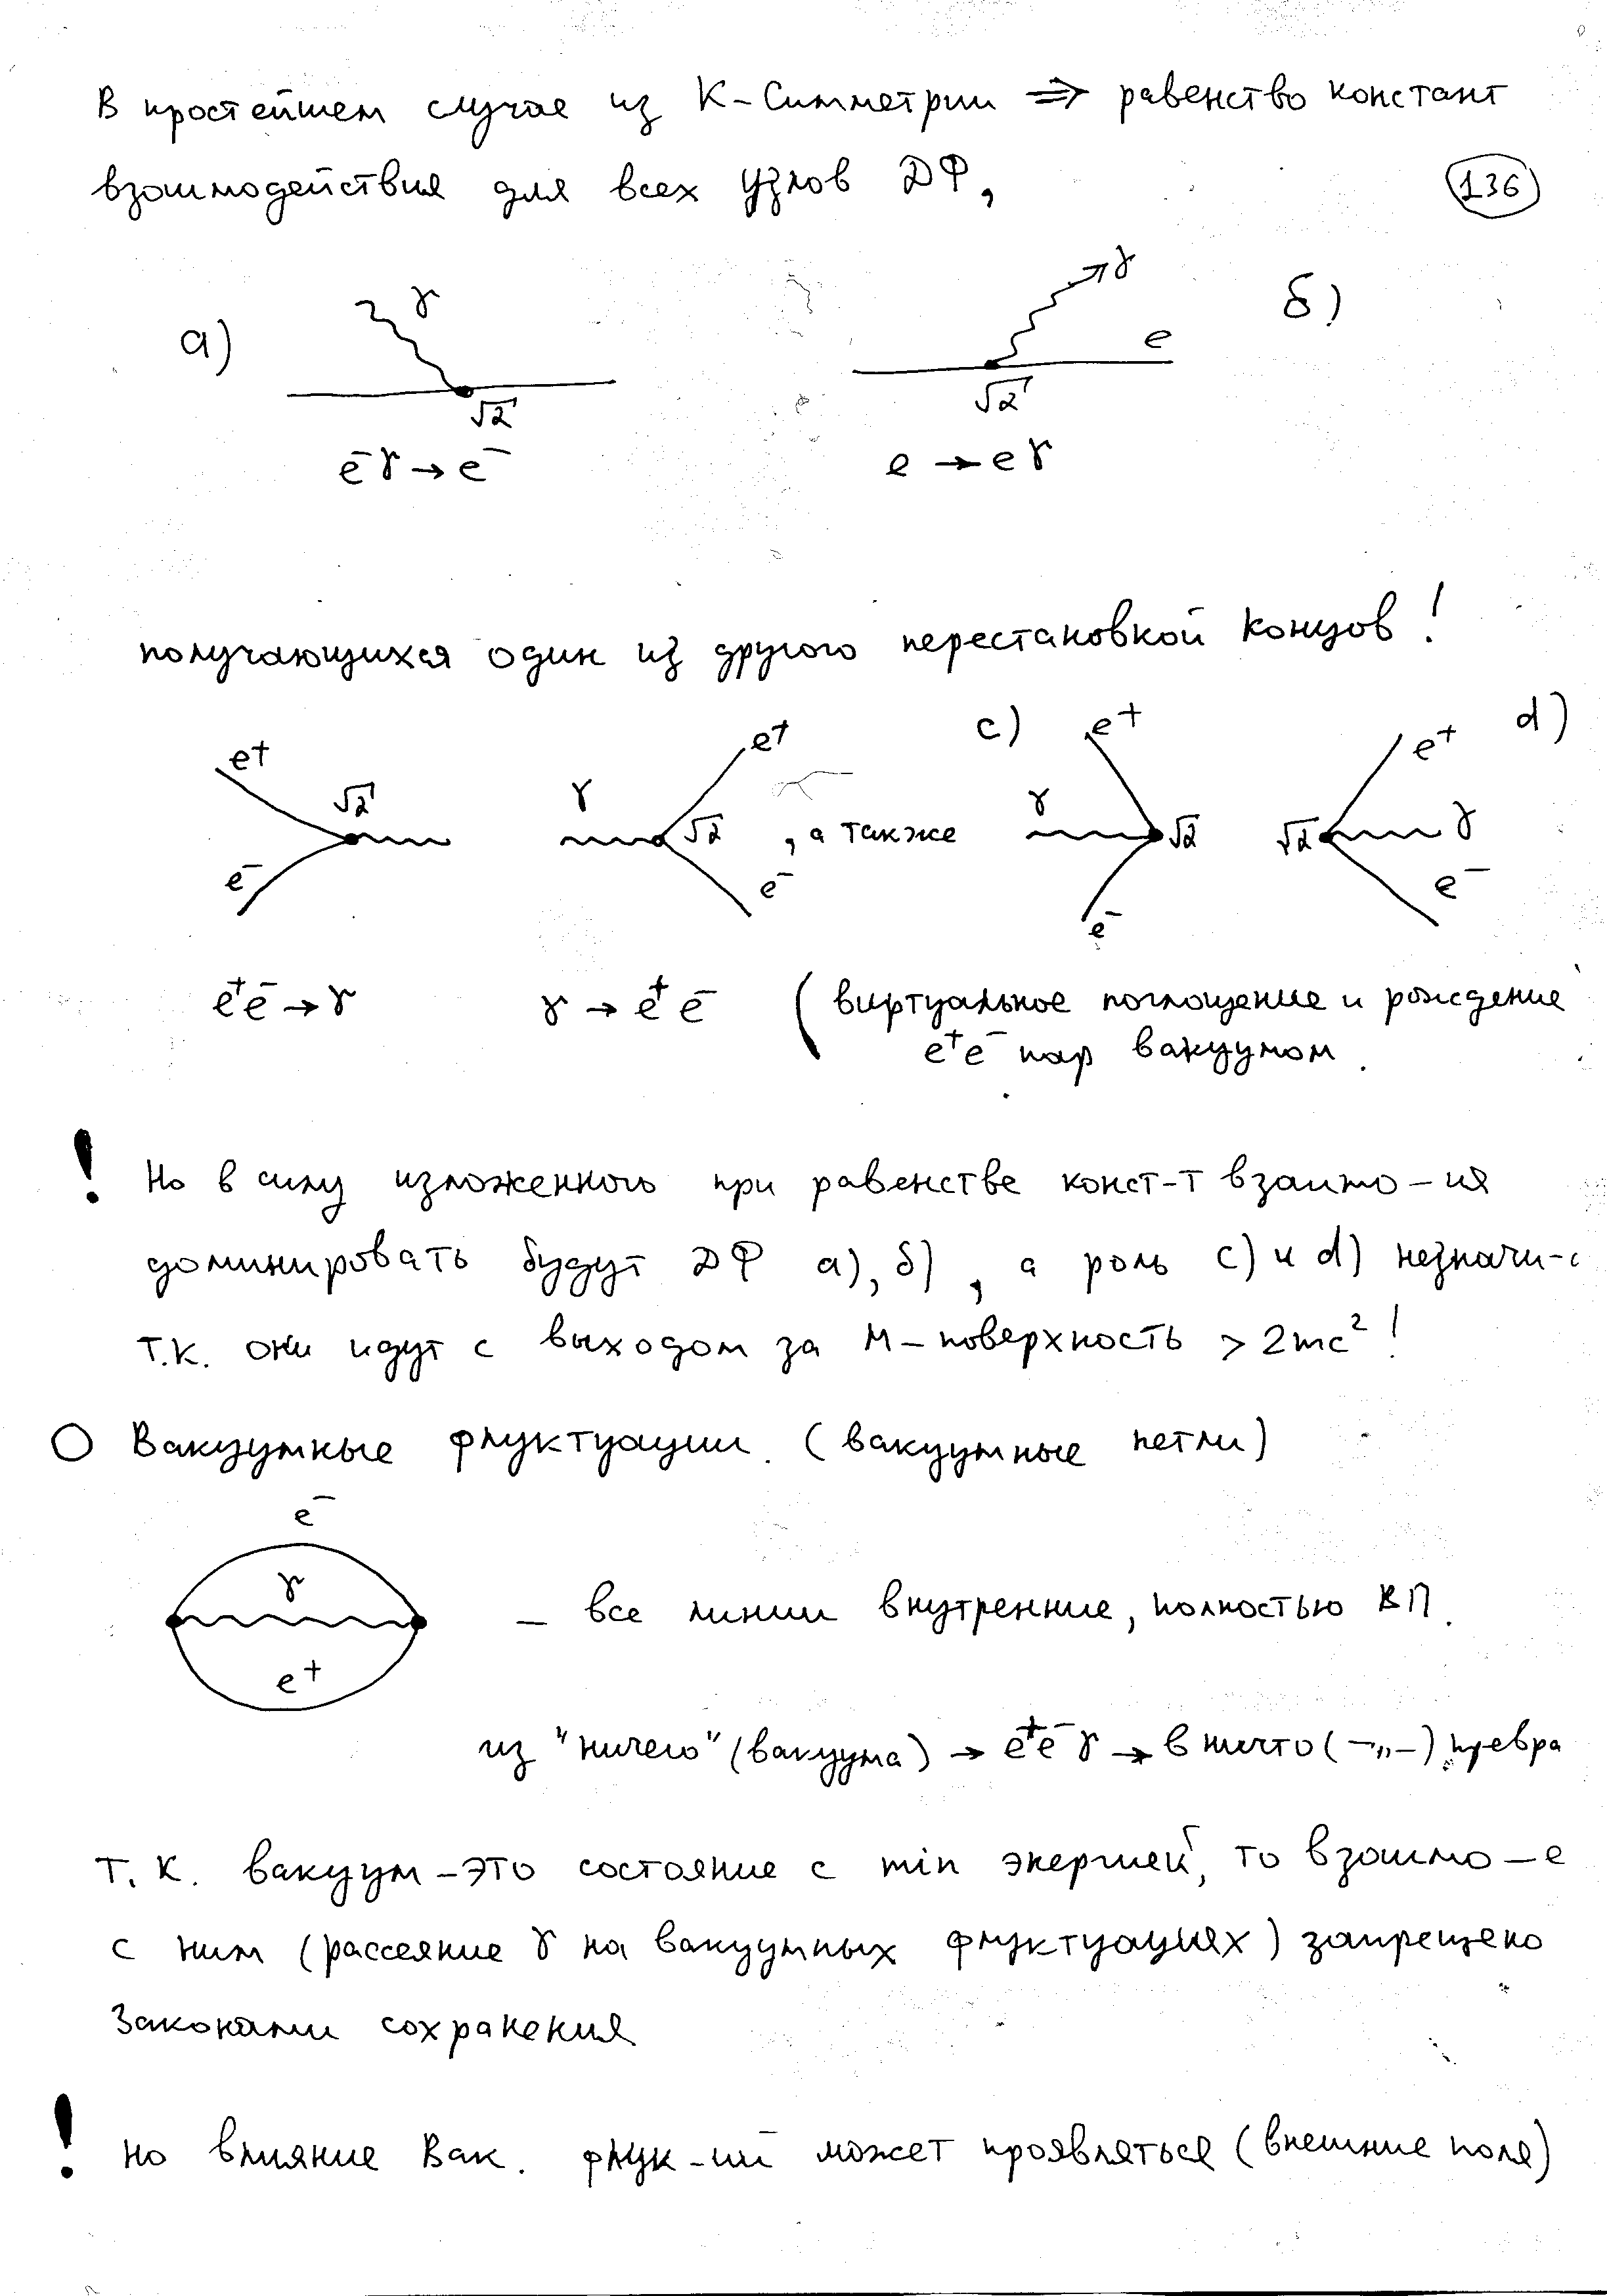 В простейшем случае из К-Симметрии ⇒ равенство констант
взаимодействия для всех узлов ДФ,
136
а)
γ
√α
e⁻γ→e⁻
γ
e
√α
e → eγ
б)
получающихся один из другого перестановкой концов!
e⁺
e⁻
√α
γ
√α
e⁺
e⁻
, а также
c)
e⁺
γ
√α
e⁻
d)
e⁺
√α
γ
e⁻
e⁺e⁻→γ
γ→e⁺e⁻
(виртуальное поглощение и рождение
e⁺e⁻ пар вакуумом.
! Но в силу изложенного при равенстве конст-т взаимо-ия
доминировать будут ДФ а), б), а роль c) и d) незначи-
т.к. они идут с выходом за М-поверхность > 2mc²!
○ Вакуумные флуктуации. (вакуумные петли)
e⁻
γ
e⁺
– все линии внутренние, полностью ВП.
из "ничего" (вакуума) → e⁺e⁻γ → в ничто (–„–) превра
Т.К. вакуум – это состояние с min энергией, то взаимо-е
с ним (рассеяние γ на вакуумных флуктуациях) запрещено
Законами сохранения
! Но влияние Вак. флук-ий может проявляться (внешние поля)